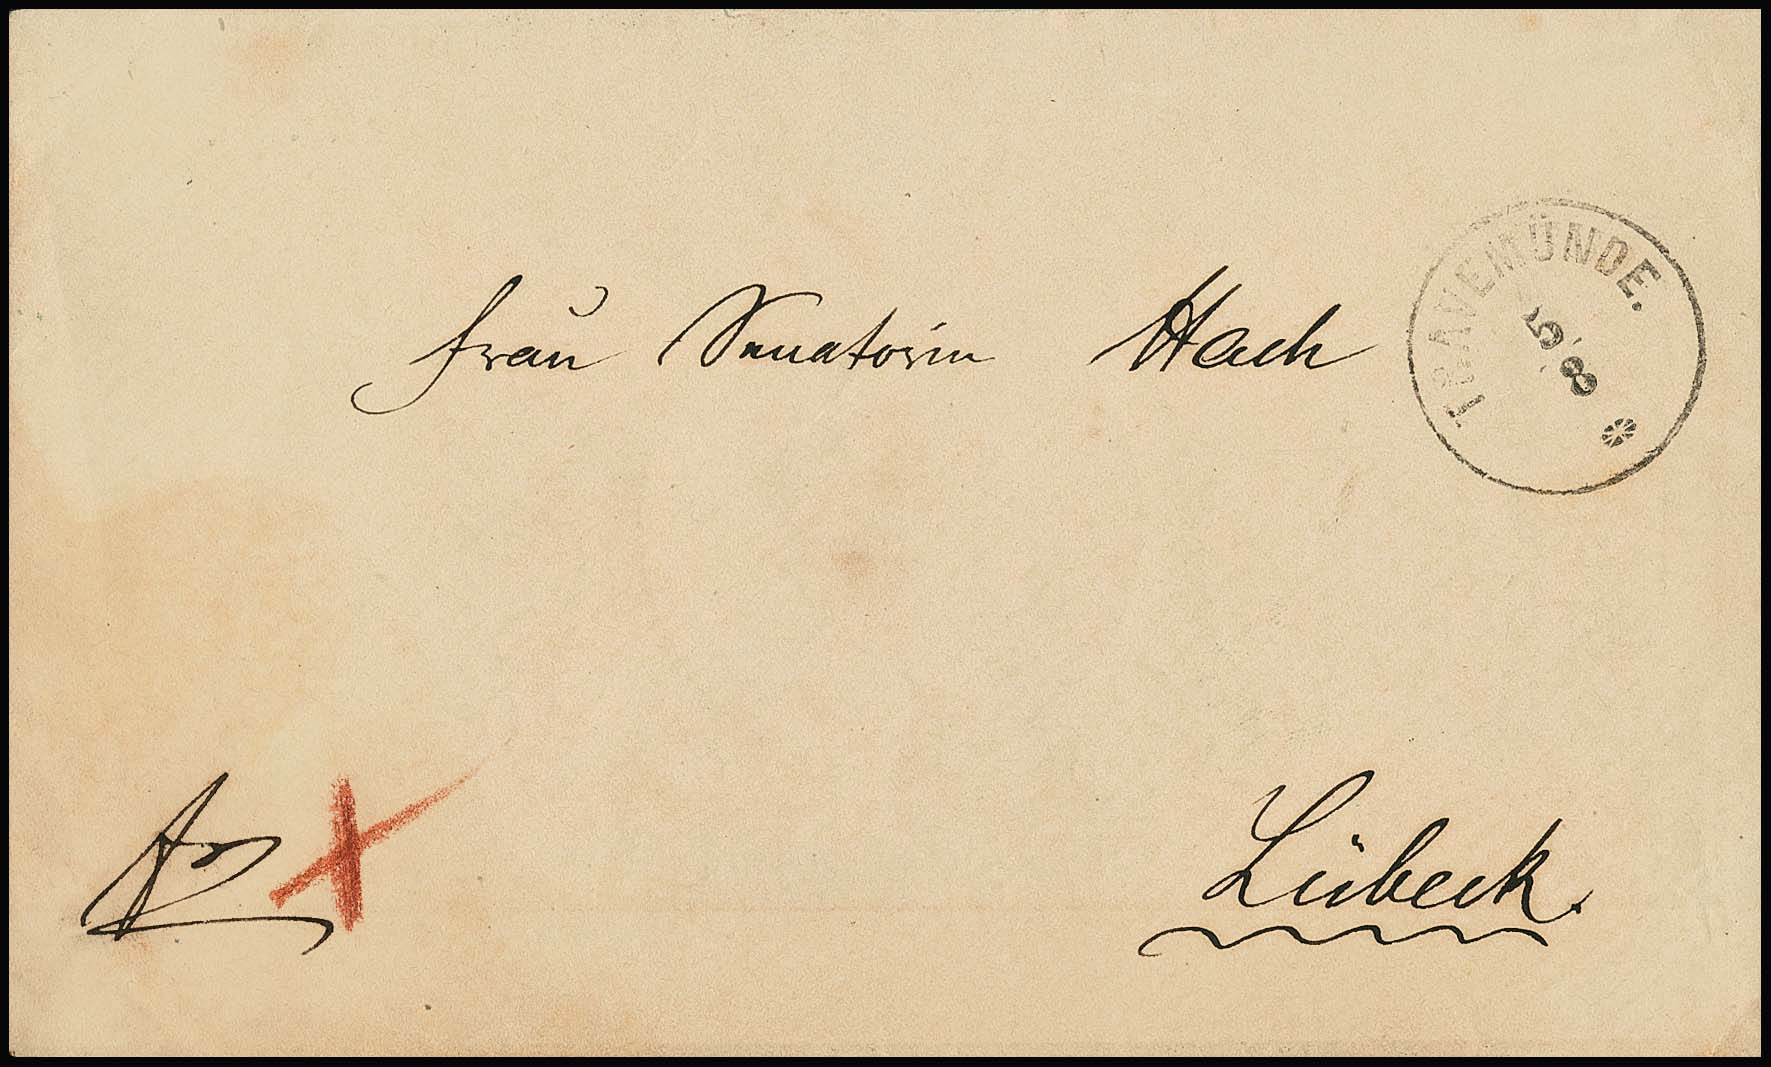 Frau Senatorin Hach
TRAVEMÜNDE.
5 8
Lübeck.